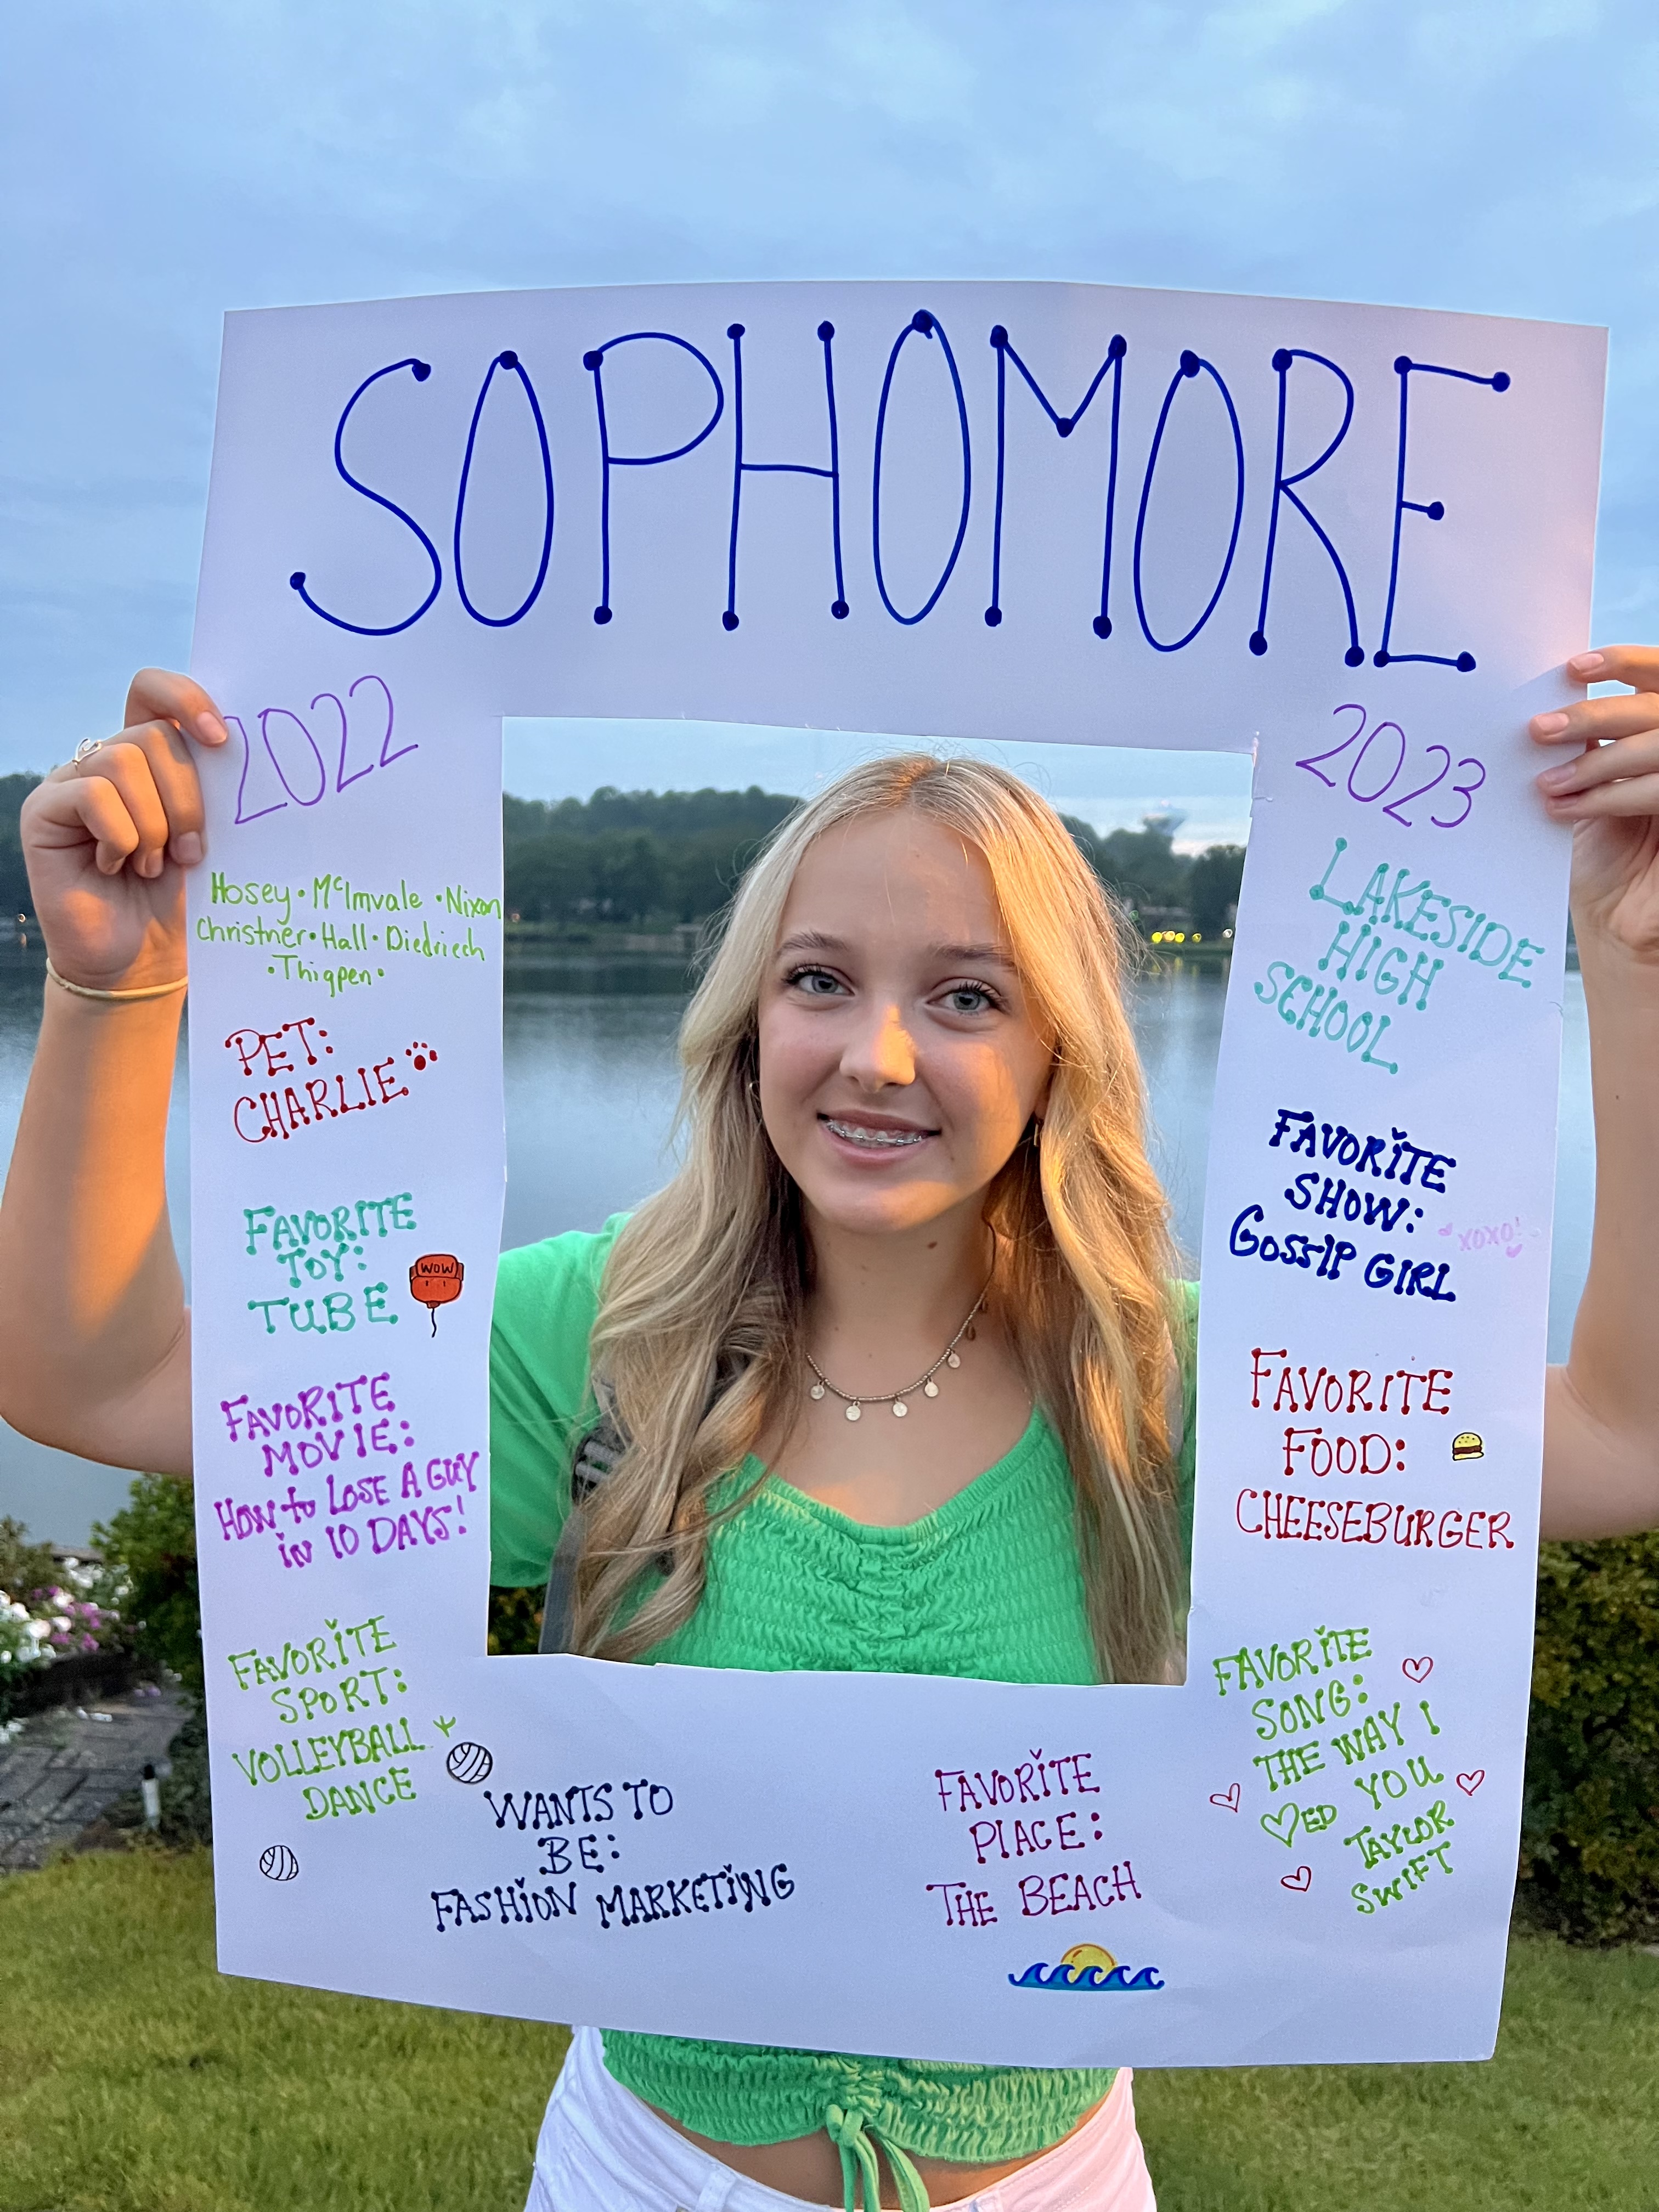 SOPHOMORE
2022
Hosey • McImvale • Nixon
Christner • Hall • Diedriech
• Thigpen •
PET:
CHARLIE
FAVORITE
TOY:
TUBE
WOW
FAVORITE
MOVIE:
HOW to LOSE A GUY
iN 10 DAYS!
FAVORITE
SPORT:
VOLLEYBALL
DANCE
WANTS TO
BE:
FASHION MARKETING
FAVORITE
PLACE:
THE BEACH
2023
LAKESIDE
HIGH
SCHOOL
FAVORITE
SHOW:
GOSSIP GIRL
XOXO!
FAVORITE
FOOD:
CHEESEBURGER
FAVORITE
SONG:
THE WAY I
♡ED YOU
TAYLOR
SWIFT